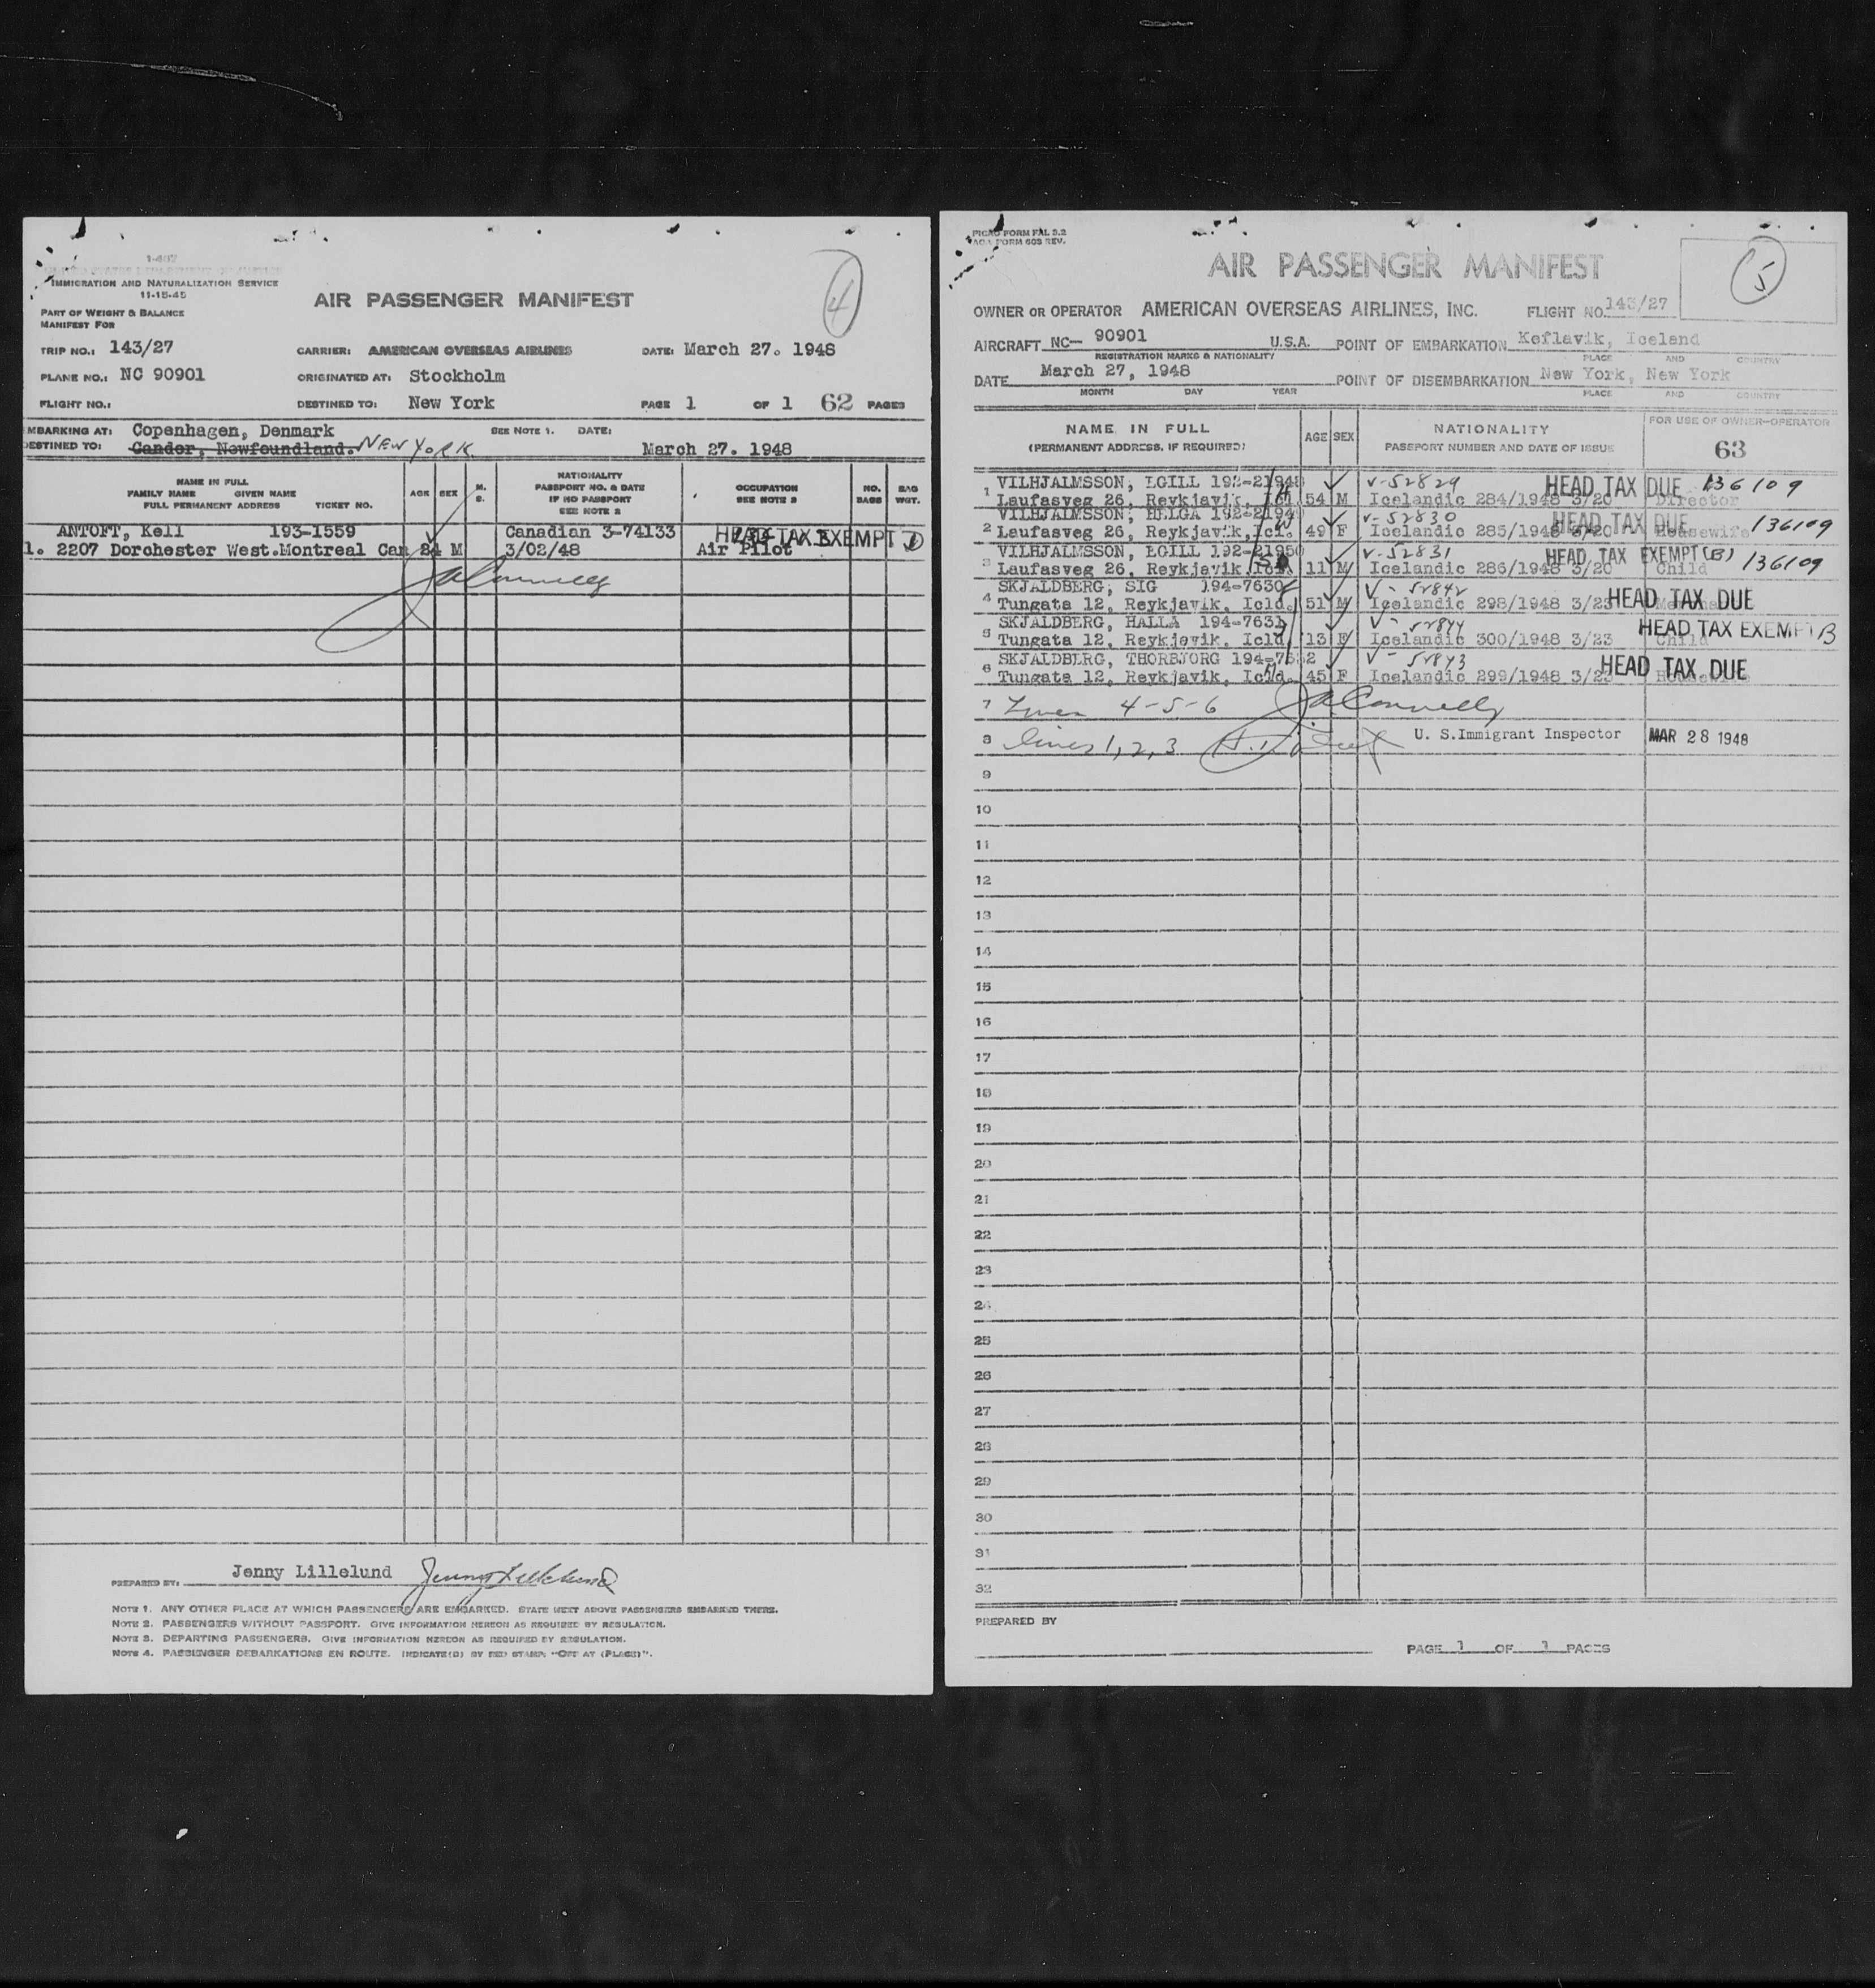 1-407
UNITED STATES DEPARTMENT OF JUSTICE
IMMIGRATION AND NATURALIZATION SERVICE
11-15-45
AIR PASSENGER MANIFEST
4
PART OF WEIGHT & BALANCE
MANIFEST FOR
TRIP NO.: 143/27 CARRIER: AMERICAN OVERSEAS AIRLINES DATE: March 27. 1948
PLANE NO.: NC 90901 ORIGINATED AT: Stockholm
FLIGHT NO.: DESTINED TO: New York PAGE 1 OF 1 62 PAGES
EMBARKING AT: Copenhagen, Denmark SEE NOTE 1. DATE:
DESTINED TO: Gander, Newfoundland. NEW YORK March 27. 1948
NAME IN FULL
FAMILY NAME GIVEN NAME
FULL PERMANENT ADDRESS TICKET NO.
AGE SEX M. S.
NATIONALITY
PASSPORT NO. & DATE
IF NO PASSPORT
SEE NOTE 2
OCCUPATION
SEE NOTE 3
NO. BAGS
BAG WGT.
ANTOFT, Kell 193-1559 Canadian 3-74133 HEAD TAX EXEMPT
1. 2207 Dorchester West.Montreal Can 24 M 3/02/48 Air Pilot
JAConnelly
PREPARED BY: Jenny Lillelund Jenny Lillelund
NOTE 1. ANY OTHER PLACE AT WHICH PASSENGERS ARE EMBARKED. STATE NEXT ABOVE PASSENGERS EMBARKED THERE.
NOTE 2. PASSENGERS WITHOUT PASSPORT. GIVE INFORMATION HEREON AS REQUIRED BY REGULATION.
NOTE 3. DEPARTING PASSENGERS. GIVE INFORMATION HEREON AS REQUIRED BY REGULATION.
NOTE 4. PASSENGER DEBARKATIONS EN ROUTE. INDICATE(D) BY RED STAMP: "OFF AT (PLACE)".
PICAO FORM FAL 3.2
AOA FORM 603 REV.
AIR PASSENGER MANIFEST
5
OWNER OR OPERATOR AMERICAN OVERSEAS AIRLINES, INC. FLIGHT NO. 143/27
AIRCRAFT NC- 90901 U.S.A. POINT OF EMBARKATION Keflavik, Iceland
REGISTRATION MARKS & NATIONALITY PLACE AND COUNTRY
DATE March 27, 1948 POINT OF DISEMBARKATION New York, New York
MONTH DAY YEAR PLACE AND COUNTRY
NAME IN FULL
(PERMANENT ADDRESS, IF REQUIRED)
AGE SEX
NATIONALITY
PASSPORT NUMBER AND DATE OF ISSUE
FOR USE OF OWNER-OPERATOR
63
VILHJALMSSON, EGILL 192-21948 V-52829 HEAD TAX DUE 136109
1 Laufasveg 26, Reykjavik, Icl. 54 M Icelandic 284/1948 3/20 Director
VILHJALMSSON, HELGA 192-21949 V-52830 HEAD TAX DUE 136109
2 Laufasveg 26, Reykjavik, Icl. 49 F Icelandic 285/1948 3/20 Housewife
VILHJALMSSON, EGILL 192-21950 V-52831 HEAD TAX EXEMPT (B) 136109
3 Laufasveg 26, Reykjavik, Icl. 11 M Icelandic 286/1948 3/20 Child
SKJALDBERG, SIG 194-7630 V-52842 HEAD TAX DUE
4 Tungata 12, Reykjavik, Icld. 51 M Icelandic 298/1948 3/23
SKJALDBERG, HALLA 194-7631 V-52844 HEAD TAX EXEMPT B
5 Tungata 12, Reykjavik, Icld. 13 F Icelandic 300/1948 3/23 Child
SKJALDBERG, THORBJORG 194-7632 V-52843 HEAD TAX DUE
6 Tungata 12, Reykjavik, Icld. 45 F Icelandic 299/1948 3/23 Housewife
7 Lines 4-5-6 JAConnelly
8 lines 1, 2, 3 U. S.Immigrant Inspector MAR 28 1948
9
10
11
12
13
14
15
16
17
18
19
20
21
22
23
24
25
26
27
28
29
30
31
32
PREPARED BY
PAGE 1 OF 1 PAGES